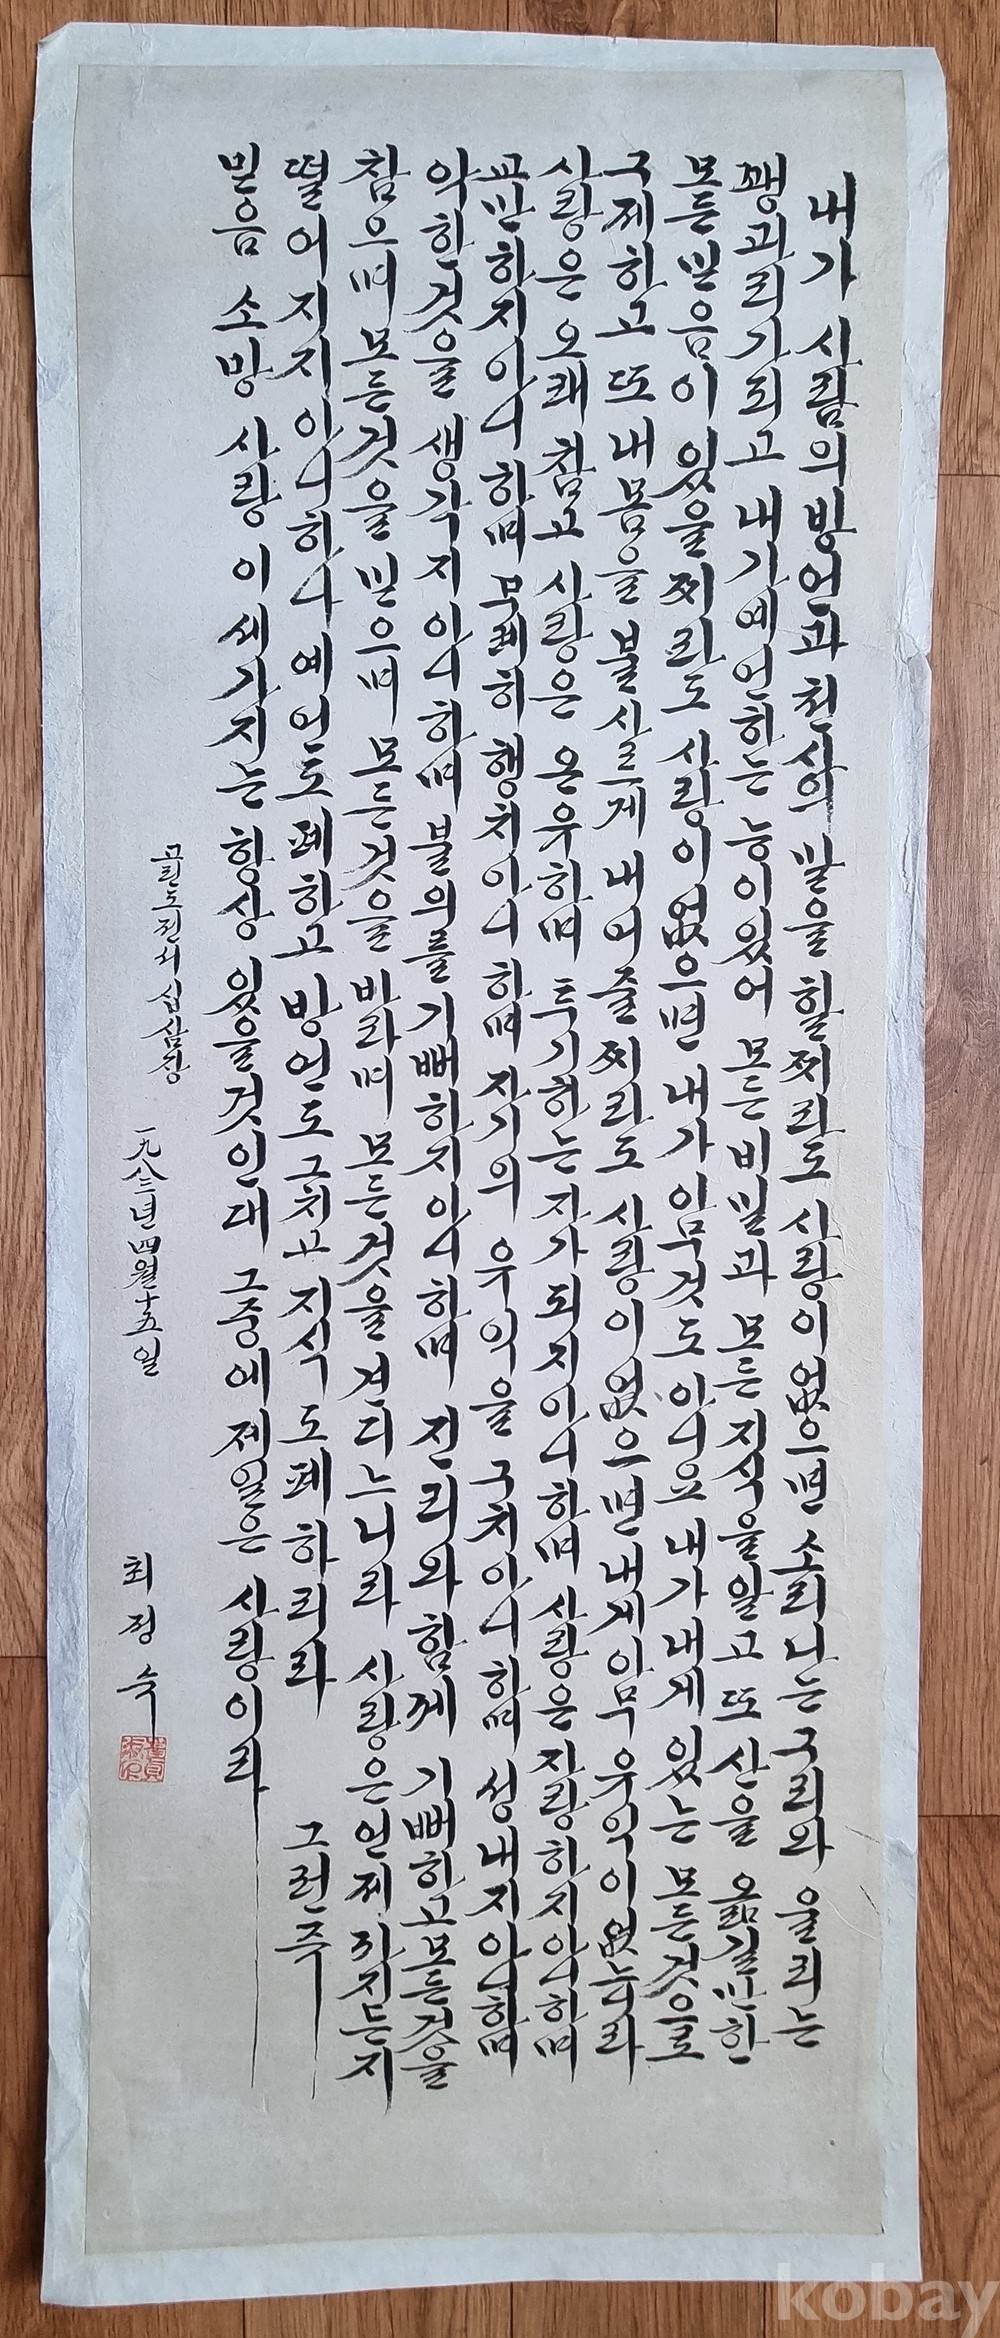 내가 사람의 방언과 천사의 말을 할찌라도 사랑이 없으면 소리나는 구리와 울리는
꽹과리가 되고 내가 예언하는 능이 있어 모든 비밀과 모든 지식을 알고 또 산을 옮길만한
모든 믿음이 있을찌라도 사랑이 없으면 내가 아무것도 아니요 내가 내게 있는 모든 것으로
구제하고 또 내 몸을 불사르게 내어 줄찌라도 사랑이 없으면 내게 아무 유익이 없느니라
사랑은 오래 참고 사랑은 온유하며 투기하는 자가 되지 아니하며 사랑은 자랑하지 아니하며
교만하지 아니하며 무례히 행치 아니하며 자기의 유익을 구치 아니하며 성내지 아니하며
악한 것을 생각지 아니하며 불의를 기뻐하지 아니하며 진리와 함께 기뻐하고 모든 것을
참으며 모든 것을 믿으며 모든 것을 바라며 모든 것을 견디느니라 사랑은 언제까지든지
떨어지지 아니하나 예언도 폐하고 방언도 그치고 지식도 폐하리라 그런즉
믿음 소망 사랑 이 세가지는 항상 있을것인대 그중에 제일은 사랑이라
고린도전서 십삼장 一九八三년 四월 十五일 최정숙
kobay